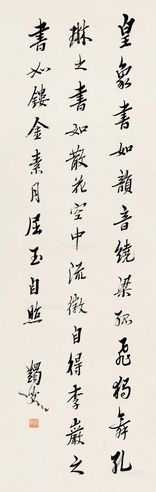 皇象书如韻音繞梁孤飛獨舞孔
琳之書如散花空中流徽自得李巖之
書如鏤金素月屈玉自照
蠲叟